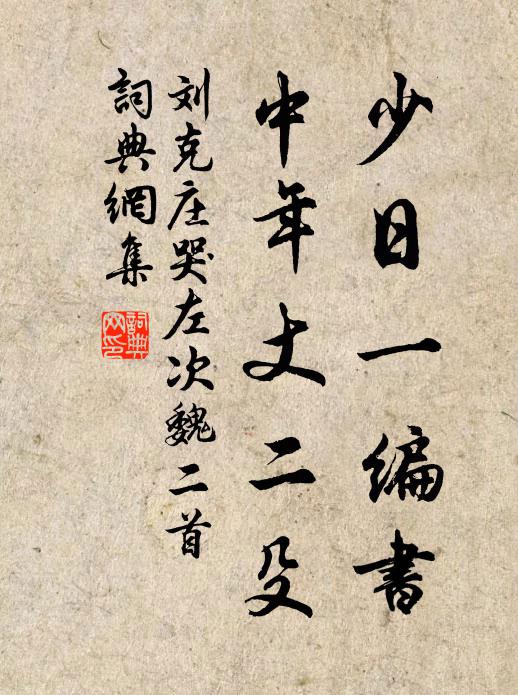 少日一编書
中年丈二殳
刘克庄哭左次魏二首
詞典網集
詞典网印